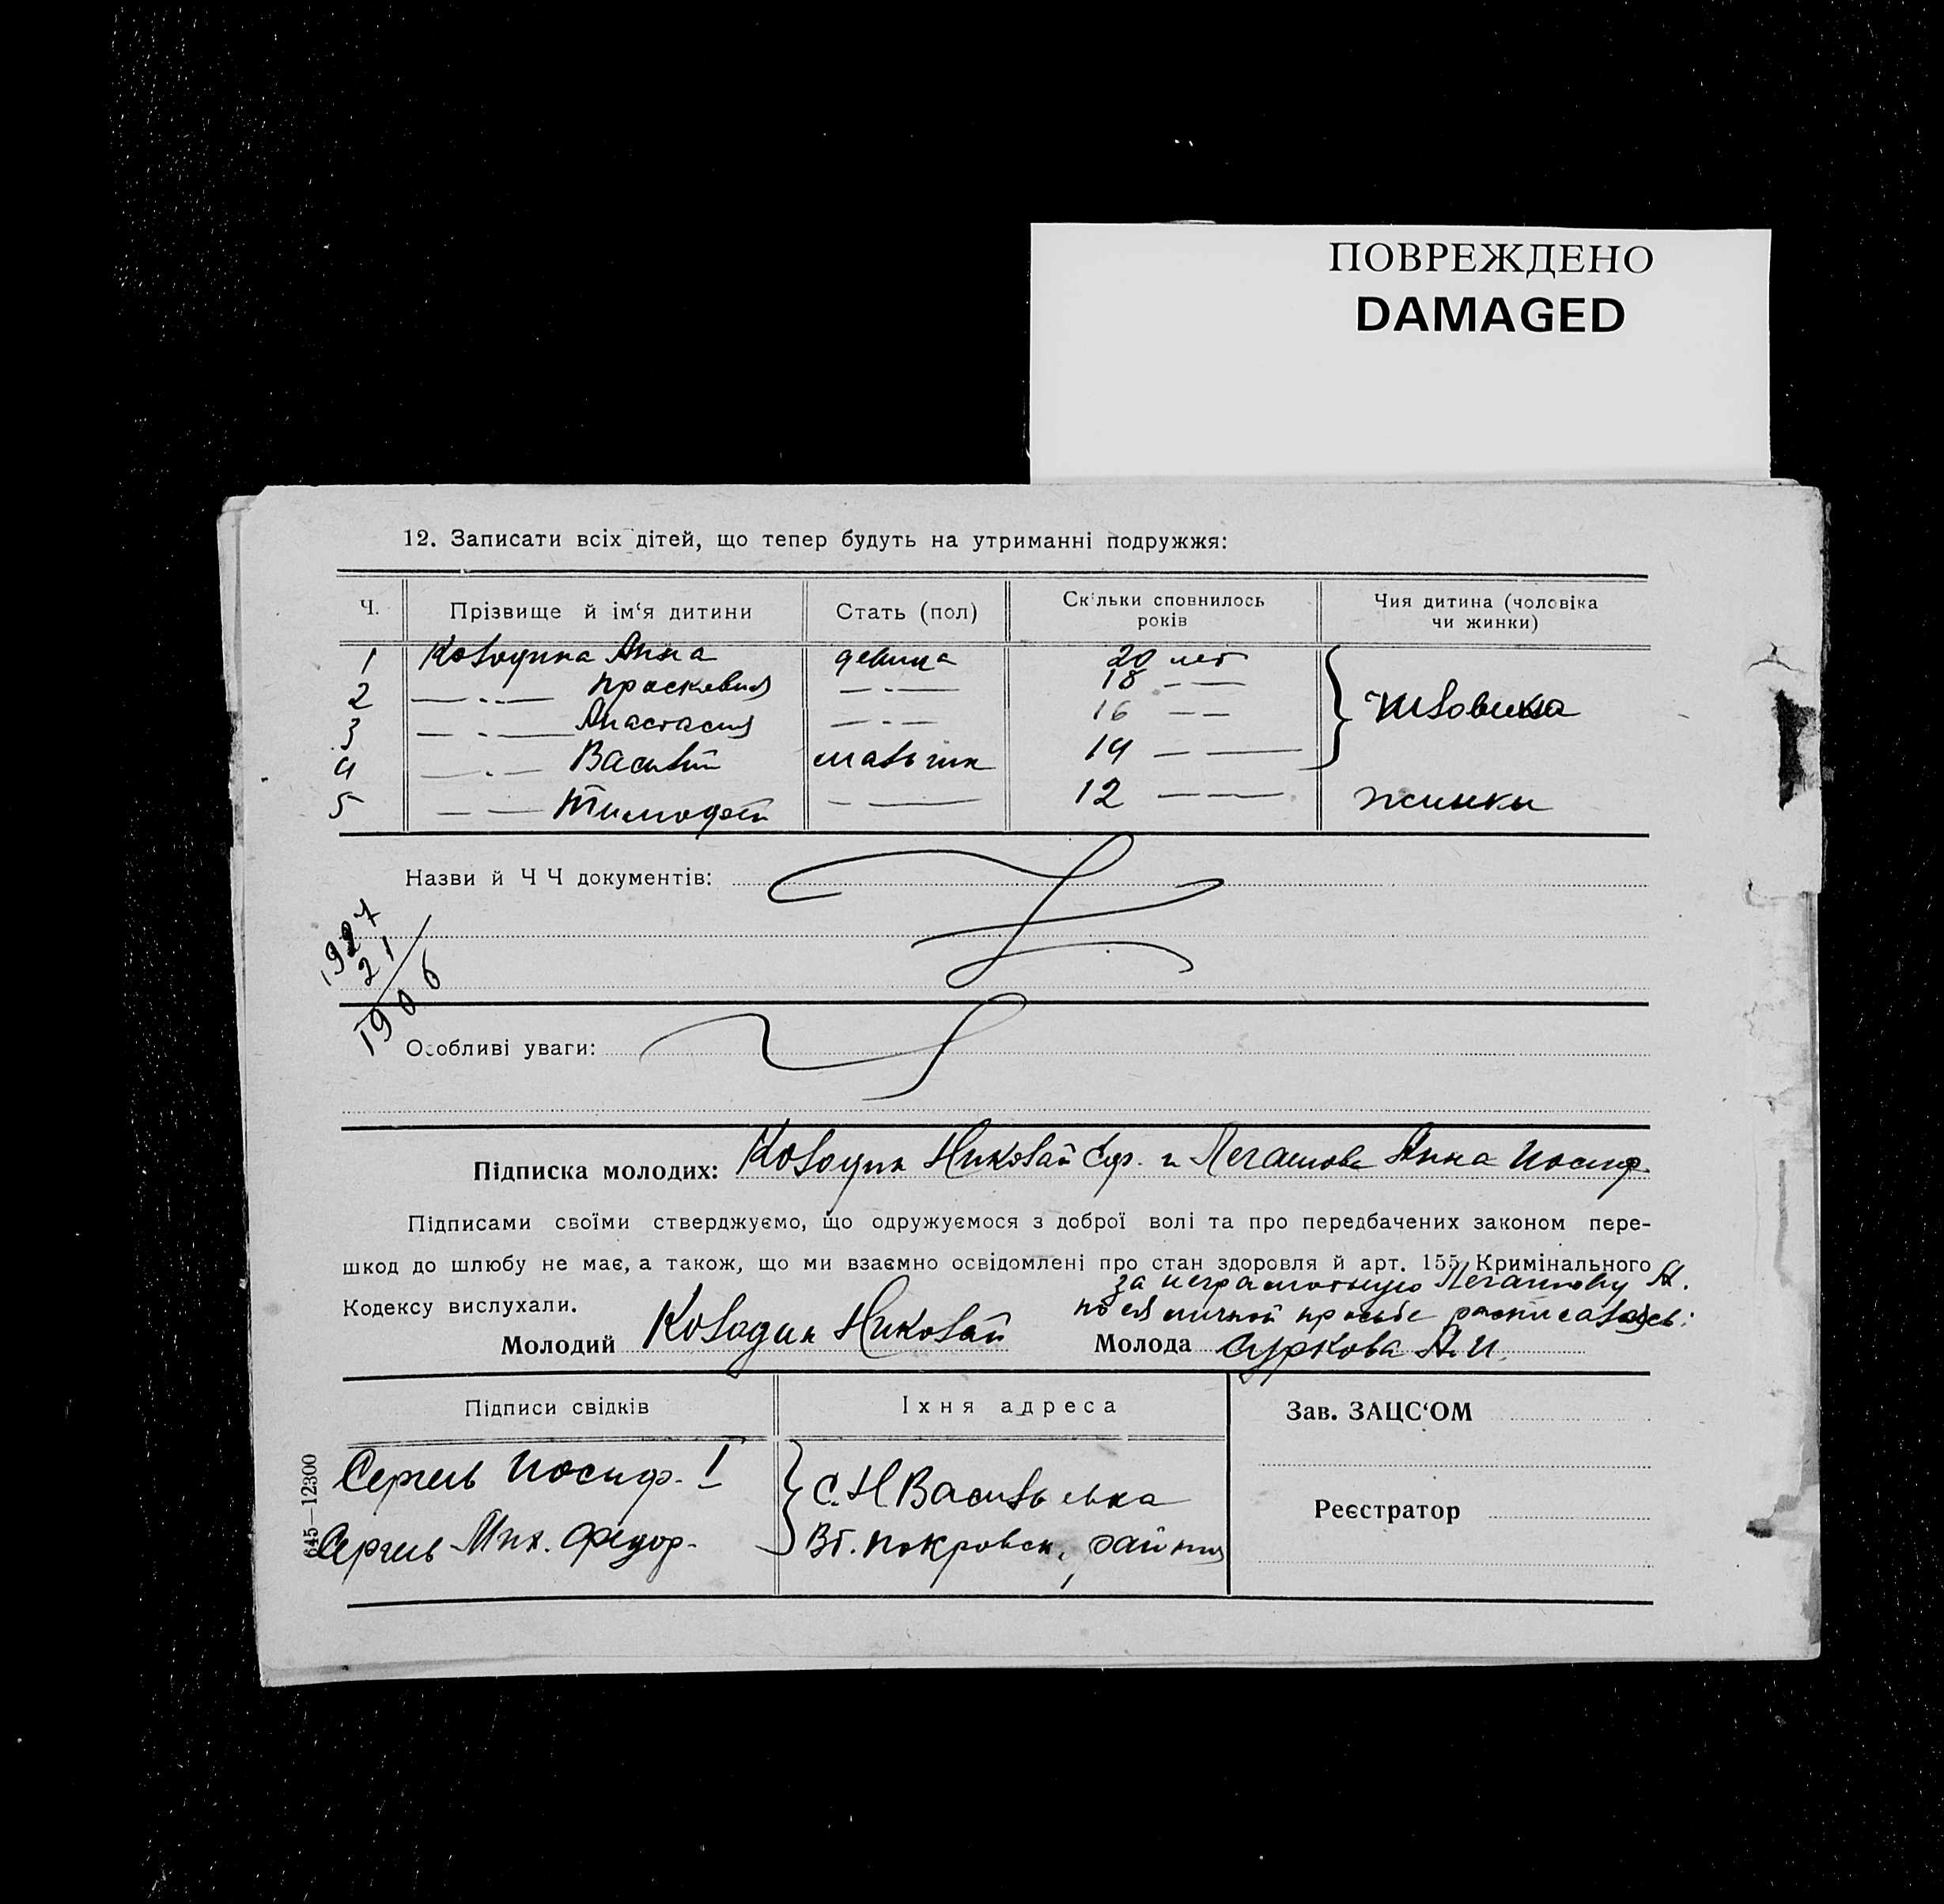 ПОВРЕЖДЕНО
DAMAGED
12. Записати всіх дітей, що тепер будуть на утриманні подружжя:
Ч. Прізвище й ім‘я дитини Стать (пол) Скільки сповнилось років Чия дитина (чоловіка чи жинки)
1 Колодина Анна девица 20 лет
2 —„— Прасковия —„— 18 — —
3 —„— Анастасия —„— 16 — — чоловика
4 —„— Василий мальчик 14 — —
5 — — Тимофей — — 12 — — жинки
Назви й Ч Ч документів:
1927
21
1906
Особливі уваги:
Підписка молодих: Колодин Николай и Легашова Анна Иосиф.
Підписами своїми стверджуємо, що одружуємося з доброї волі та про передбачених законом пере-
шкод до шлюбу не має, а також, що ми взаємно освідомлені про стан здоровля й арт. 155 Кримінального
Кодексу вислухали.
за неграмотную Легашову А.
по ея личной просьбе расписалась:
Молодий Колодин Николай Молода Суркова А. И.
Підписи свідків Їхня адреса Зав. ЗАЦС‘ОМ
Сергель Иосиф. I С. Н Васильевка
Сергель Мих. Федор. Вт. Покровск, района
Реєстратор
645—12300